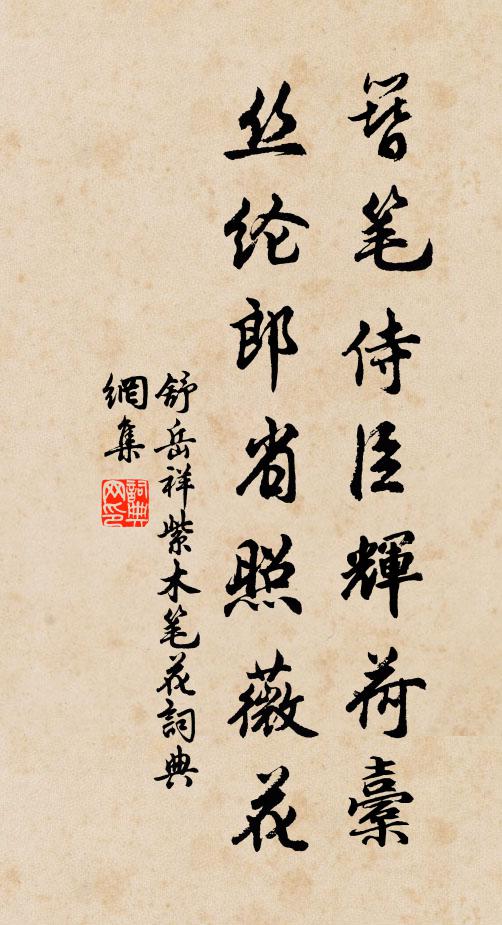 簪笔侍臣輝荷橐
丝纶郎省照薇花
舒岳祥紫木笔花詞典
網集
詞典
网印